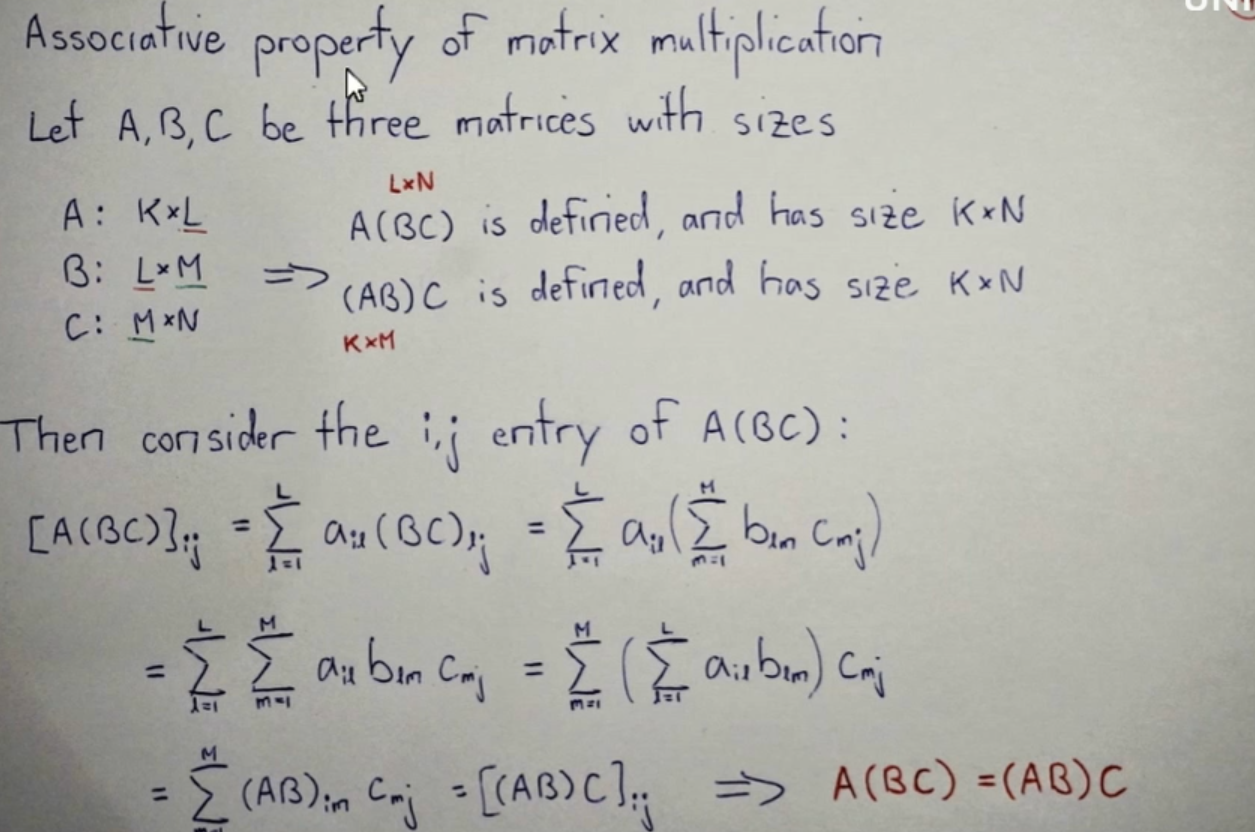 UNI
Associative property of matrix multiplication
Let A, B, C be three matrices with sizes
L×N
A: K×L
A(BC) is defined, and has size K×N
B: L×M ⟹
(AB)C is defined, and has size K×N
C: M×N
K×M
Then consider the i,j entry of A(BC):
[A(BC)]_{ij} = \sum_{l=1}^{L} a_{il}(BC)_{lj} = \sum_{l=1}^{L} a_{il}(\sum_{m=1}^{M} b_{lm} c_{mj})
= \sum_{l=1}^{L} \sum_{m=1}^{M} a_{il} b_{lm} c_{mj} = \sum_{m=1}^{M} (\sum_{l=1}^{L} a_{il} b_{lm}) c_{mj}
= \sum_{m=1}^{M} (AB)_{im} c_{mj} = [(AB)C]_{ij} ⟹ A(BC) = (AB)C